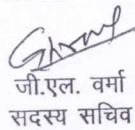 जी.एल. वर्मा
सदस्य सचिव